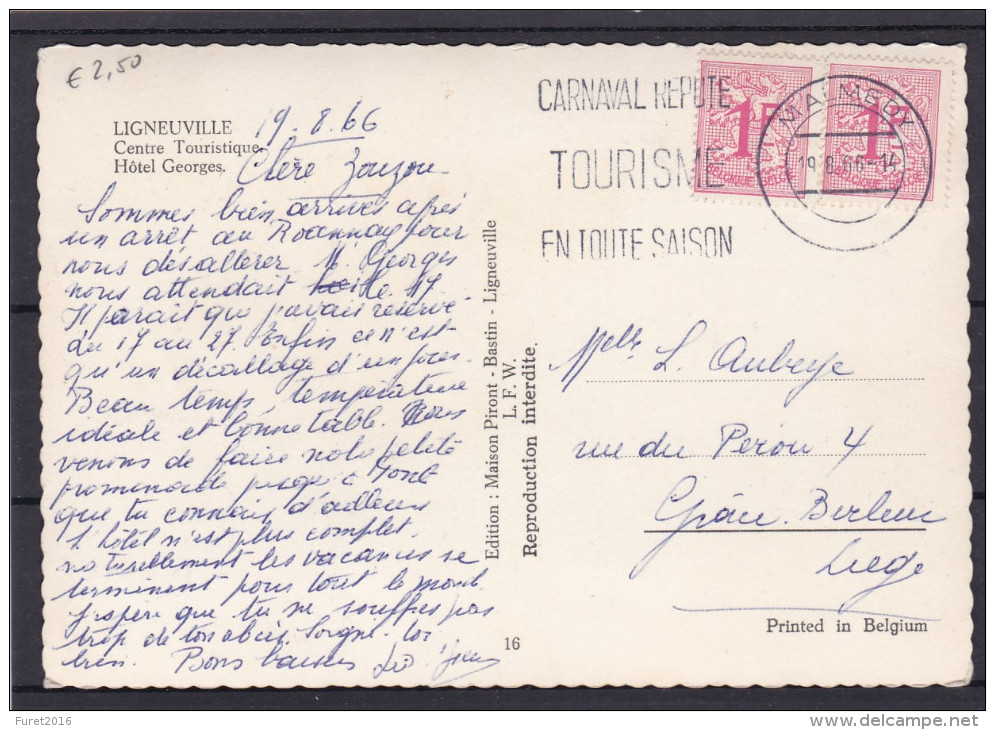 € 2,50
LIGNEUVILLE
Centre Touristique.
Hôtel Georges.
19.8.66
Chère Zouzou
Sommes bien arrivés après
un arrêt au Roannay pour
nous désaltérer. M. Georges
nous attendait le 17
Il parait que j'avais réservé
du 17 au 27. Enfin ce n'est
qu'un décallage d'un jour.
Beau temps, température
idéale et bonne table. Nous
venons de faire notre petite
promenade jusqu'à Pont
que tu connais d'ailleurs
L'hôtel n'est plus complet.
naturellement les vacances se
terminent pour tout le monde
J'espère que tu ne souffres pas
trop de ton abcès. Soigne-toi
bien. Bons baisers
Edition : Maison Piront-Bastin - Ligneuville
L. F. W.
Reproduction interdite.
16
CARNAVAL REPUTE
TOURISME
EN TOUTE SAISON
1F
1F
MALMEDY
19.8.66-14
Melle L. Aubeye
rue du Perou 4
Grâce-Berleur
Liège
Printed in Belgium
Furet2016
www.delcampe.net